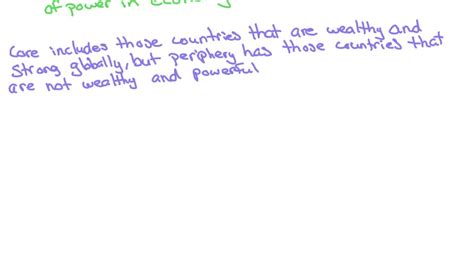 of power in
Core includes those countries that are wealthy and
Strong globally, but periphery has those countries that
are not wealthy and powerful